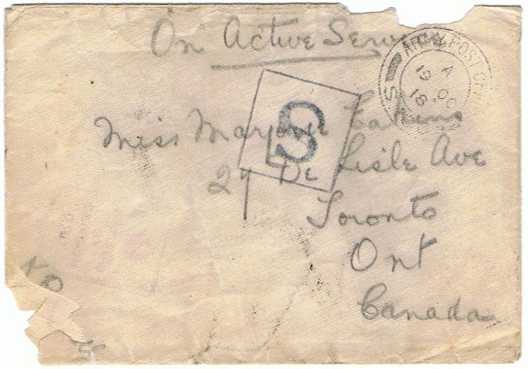 On Active Service
ARMY POST OF
A
19 OC
18
S
S
Miss Marjorie
27 De Lisle Ave
Toronto
Ont
Canada